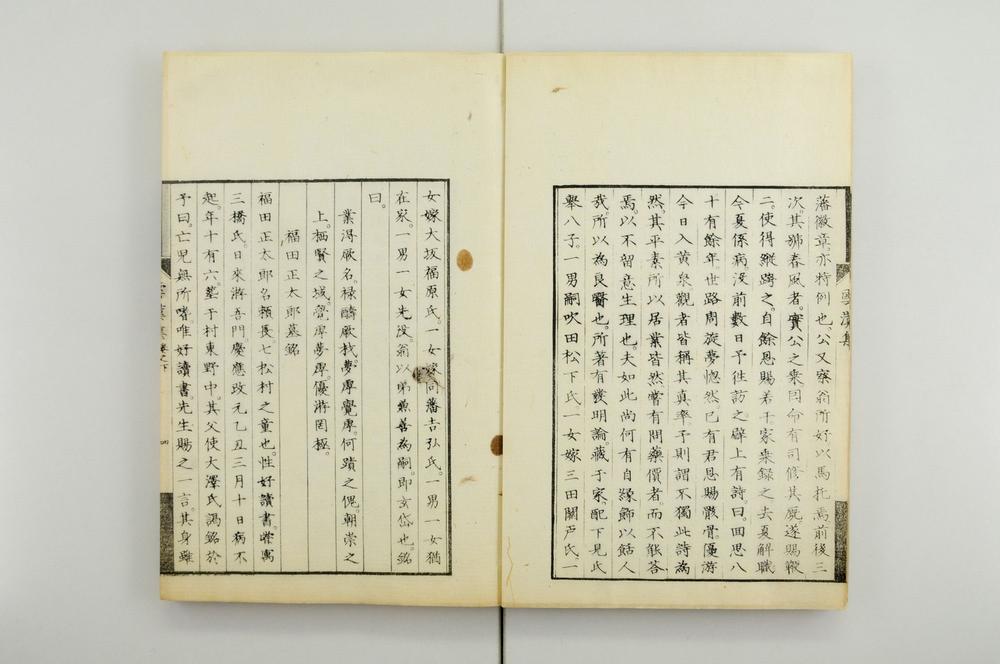 藩徽章。亦特例也。公又察翁所好以馬托焉前後三
次。其獅春風者。實公之乗因命有司修其廐。遂賜轍
二。使得縱跨之。自餘恩賜若干。家乗録之去夏解職
今夏係病。没前數日予徃訪之。壁上有詩曰。回思八
十有餘年。世路周旋夢惚然。已有君恩賜骸骨。優游
今日入黄泉觀者皆稱其真率。予則謂不獨此詩為
然。其平素所以居業皆然嘗有問藥價者。而不能答
焉。以不留意生理也。夫如此尚何有自縁飾以餂人
哉。所以為良醫也。所著有援明論。藏于家。配下見氏
舉八子。一男嗣吹田松下氏。一女嫁三田關戸氏、一
女嫁大坂福原氏。一女嫁同藩吉弘氏。一男一女猶
在家。一男一女先没。翁以弟無善為嗣。即玄岱也。銘
曰。
業淂厥名。禄醻厥材。夢虖覺虖。何蹟之傀。朝崇之
上。栖賢之城。覺虖夢虖。優游罔極。
福田正太郎墓銘
福田正太郎名頼長。七松村之童也。性好讀書。嘗寓
三橋氏。日來游吾門。慶應改元乙丑三月十日病不
起。年十有六。塟于村東野中。其父使大澤氏謁銘於
予曰。亡児無所嗜唯好讀書。先生賜之一言。其身雖